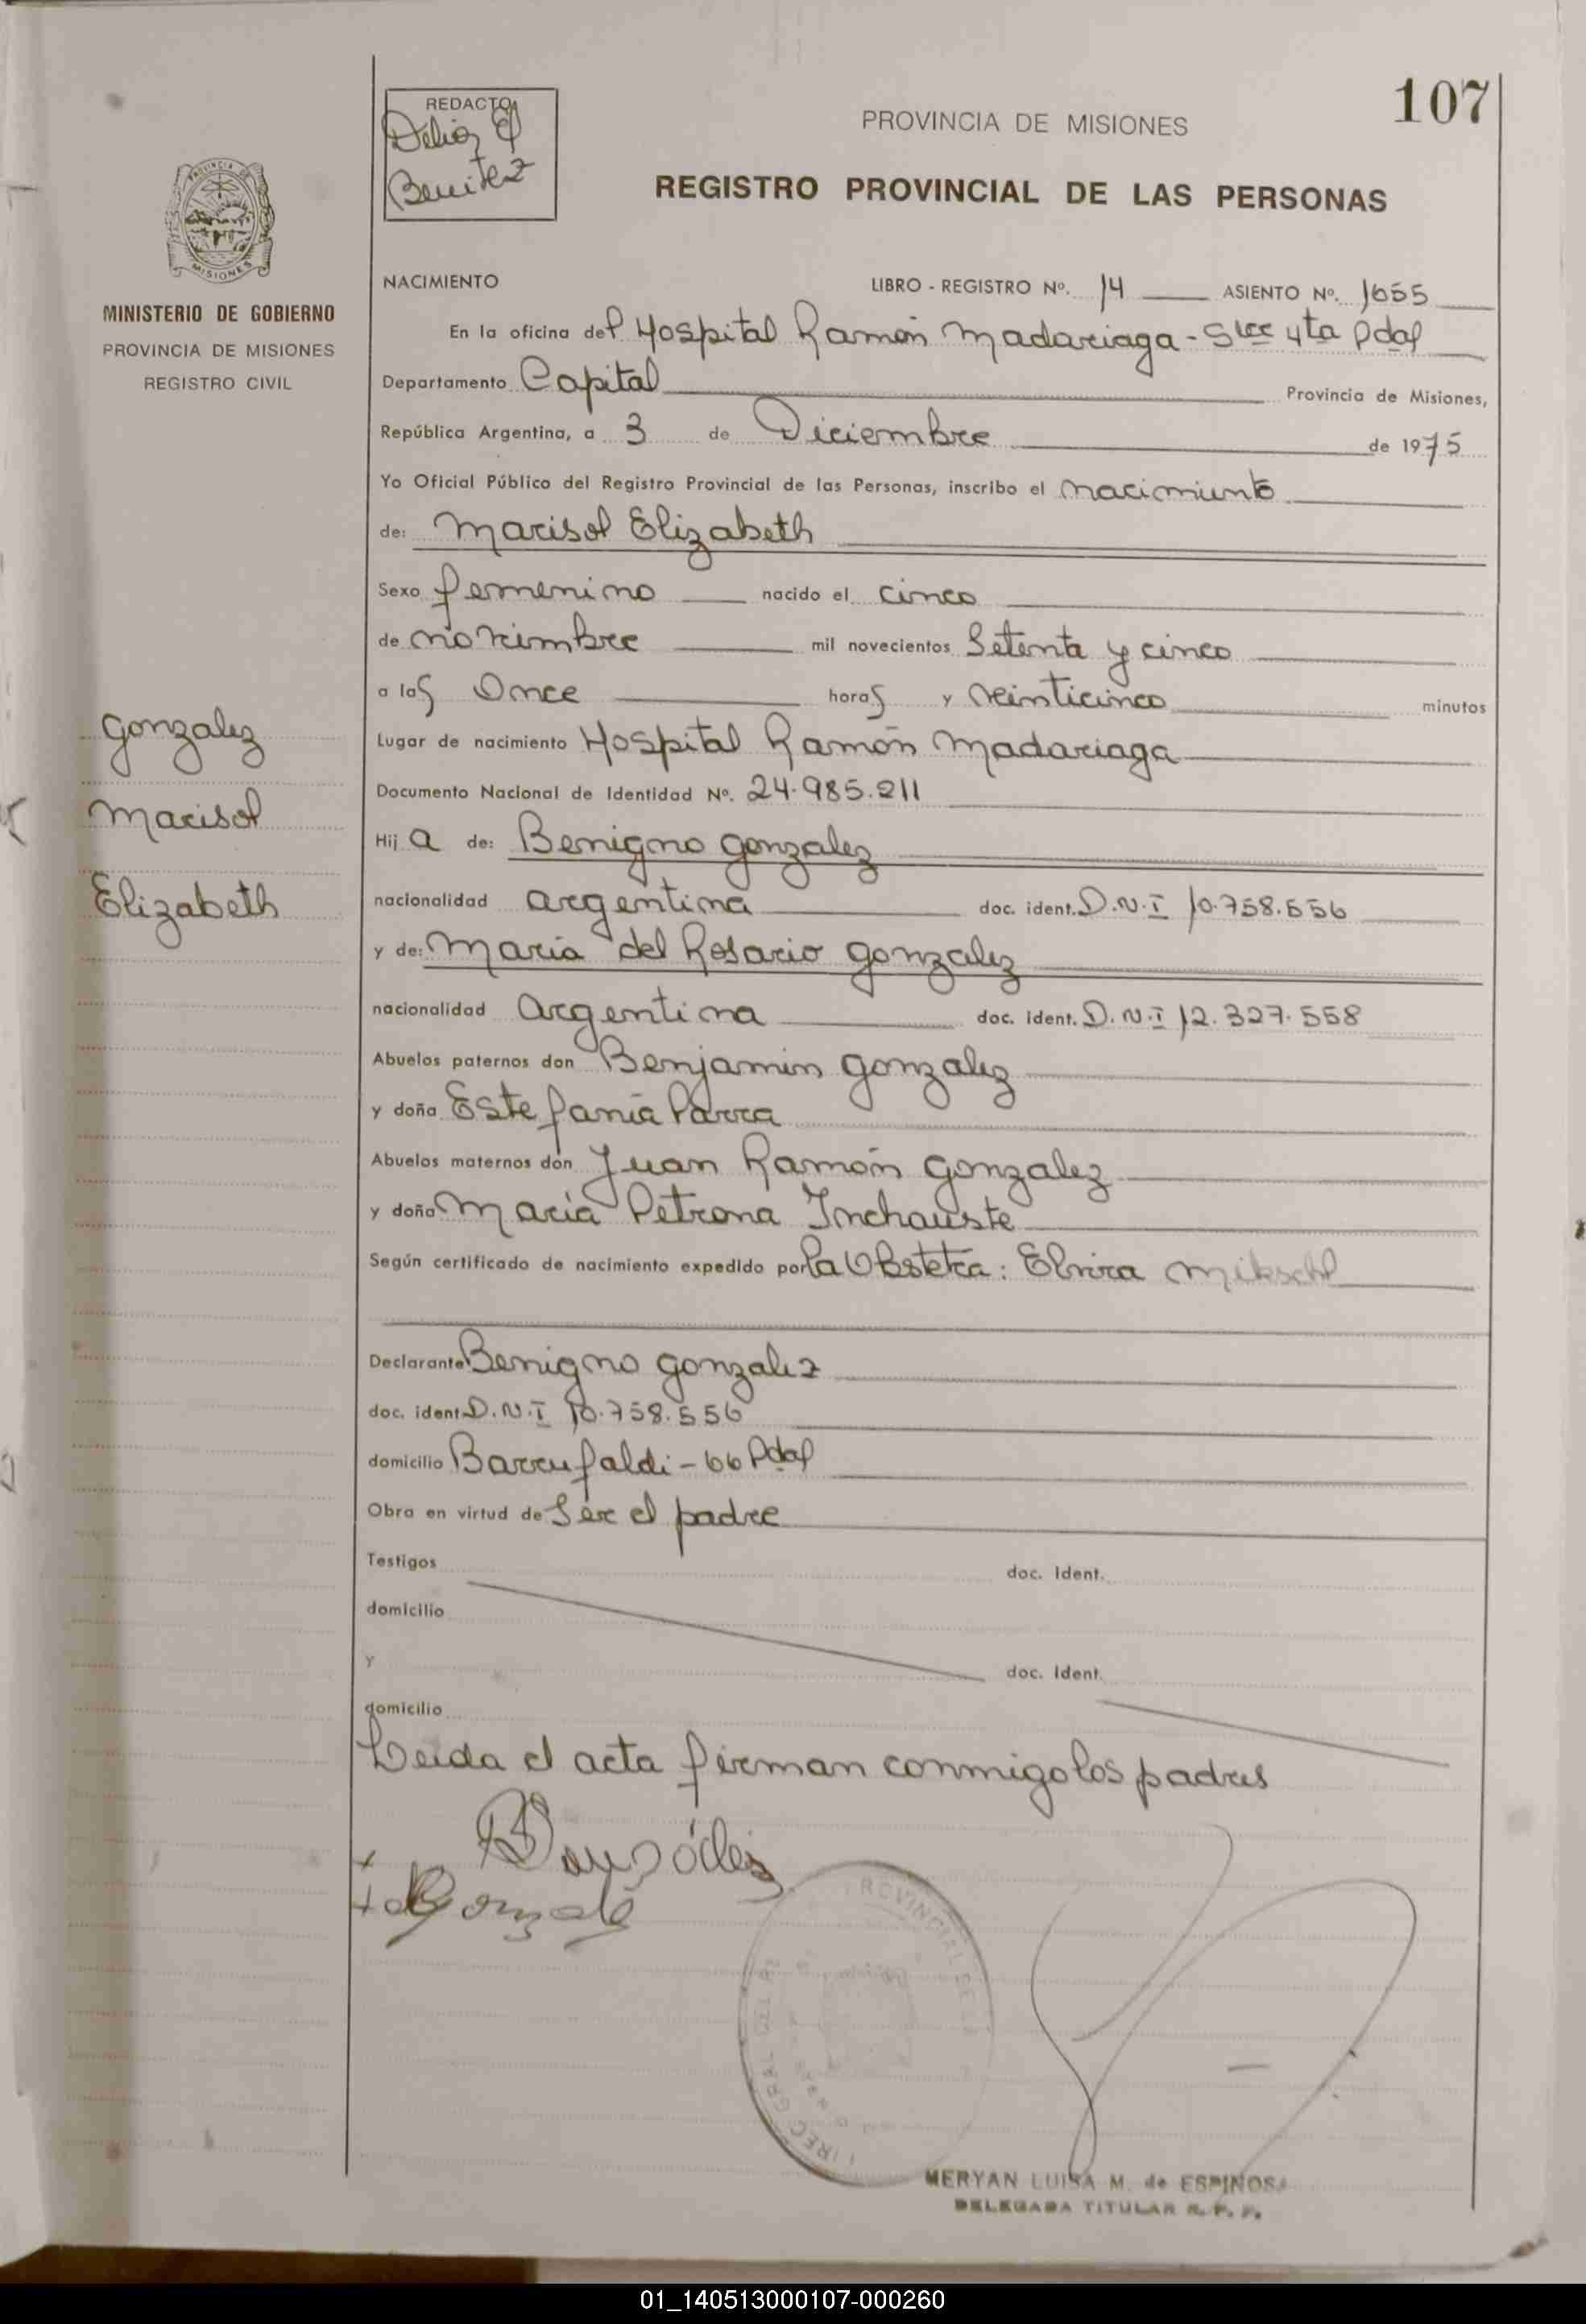 107
REDACTO
Delia E
Benitez
PROVINCIA DE MISIONES
REGISTRO PROVINCIAL DE LAS PERSONAS
PROVINCIA DE
MISIONES
MINISTERIO DE GOBIERNO
PROVINCIA DE MISIONES
REGISTRO CIVIL
Gonzalez
Marisol
Elizabeth
NACIMIENTO LIBRO - REGISTRO Nº. 14 ASIENTO Nº. 1655
En la oficina del Hospital Ramón Madariaga - Secc 4ta Pdas
Departamento Capital Provincia de Misiones,
República Argentina, a 3 de Diciembre de 1975
Yo Oficial Público del Registro Provincial de las Personas, inscribo el nacimiento
de: Marisol Elizabeth
Sexo femenino nacido el cinco
de noviembre mil novecientos Setenta y cinco
a las Once horas y veinticinco minutos
Lugar de nacimiento Hospital Ramón Madariaga
Documento Nacional de Identidad Nº. 24.985.211
Hija de: Benigno Gonzalez
nacionalidad argentina doc. ident. D.N.I 10.758.556
y de: Maria del Rosario Gonzalez
nacionalidad Argentina doc. ident. D.N.I 12.327.558
Abuelos paternos don Benjamin Gonzalez
y doña Estefanía Parra
Abuelos maternos don Juan Ramón Gonzalez
y doña María Petrona Inchauste
Según certificado de nacimiento expedido por la Obstetra: Elvira
Declarante Benigno Gonzalez
doc. ident. D.N.I 10.758.556
domicilio Barrufaldi - 66 Pdas
Obra en virtud de Ser el padre
Testigos doc. Ident.
domicilio
y doc. Ident.
domicilio
Leida el acta firman conmigo los padres
MERYAN LUISA M. de ESPINOSA
DELEGADA TITULAR R. P. P.
01_140513000107-000260